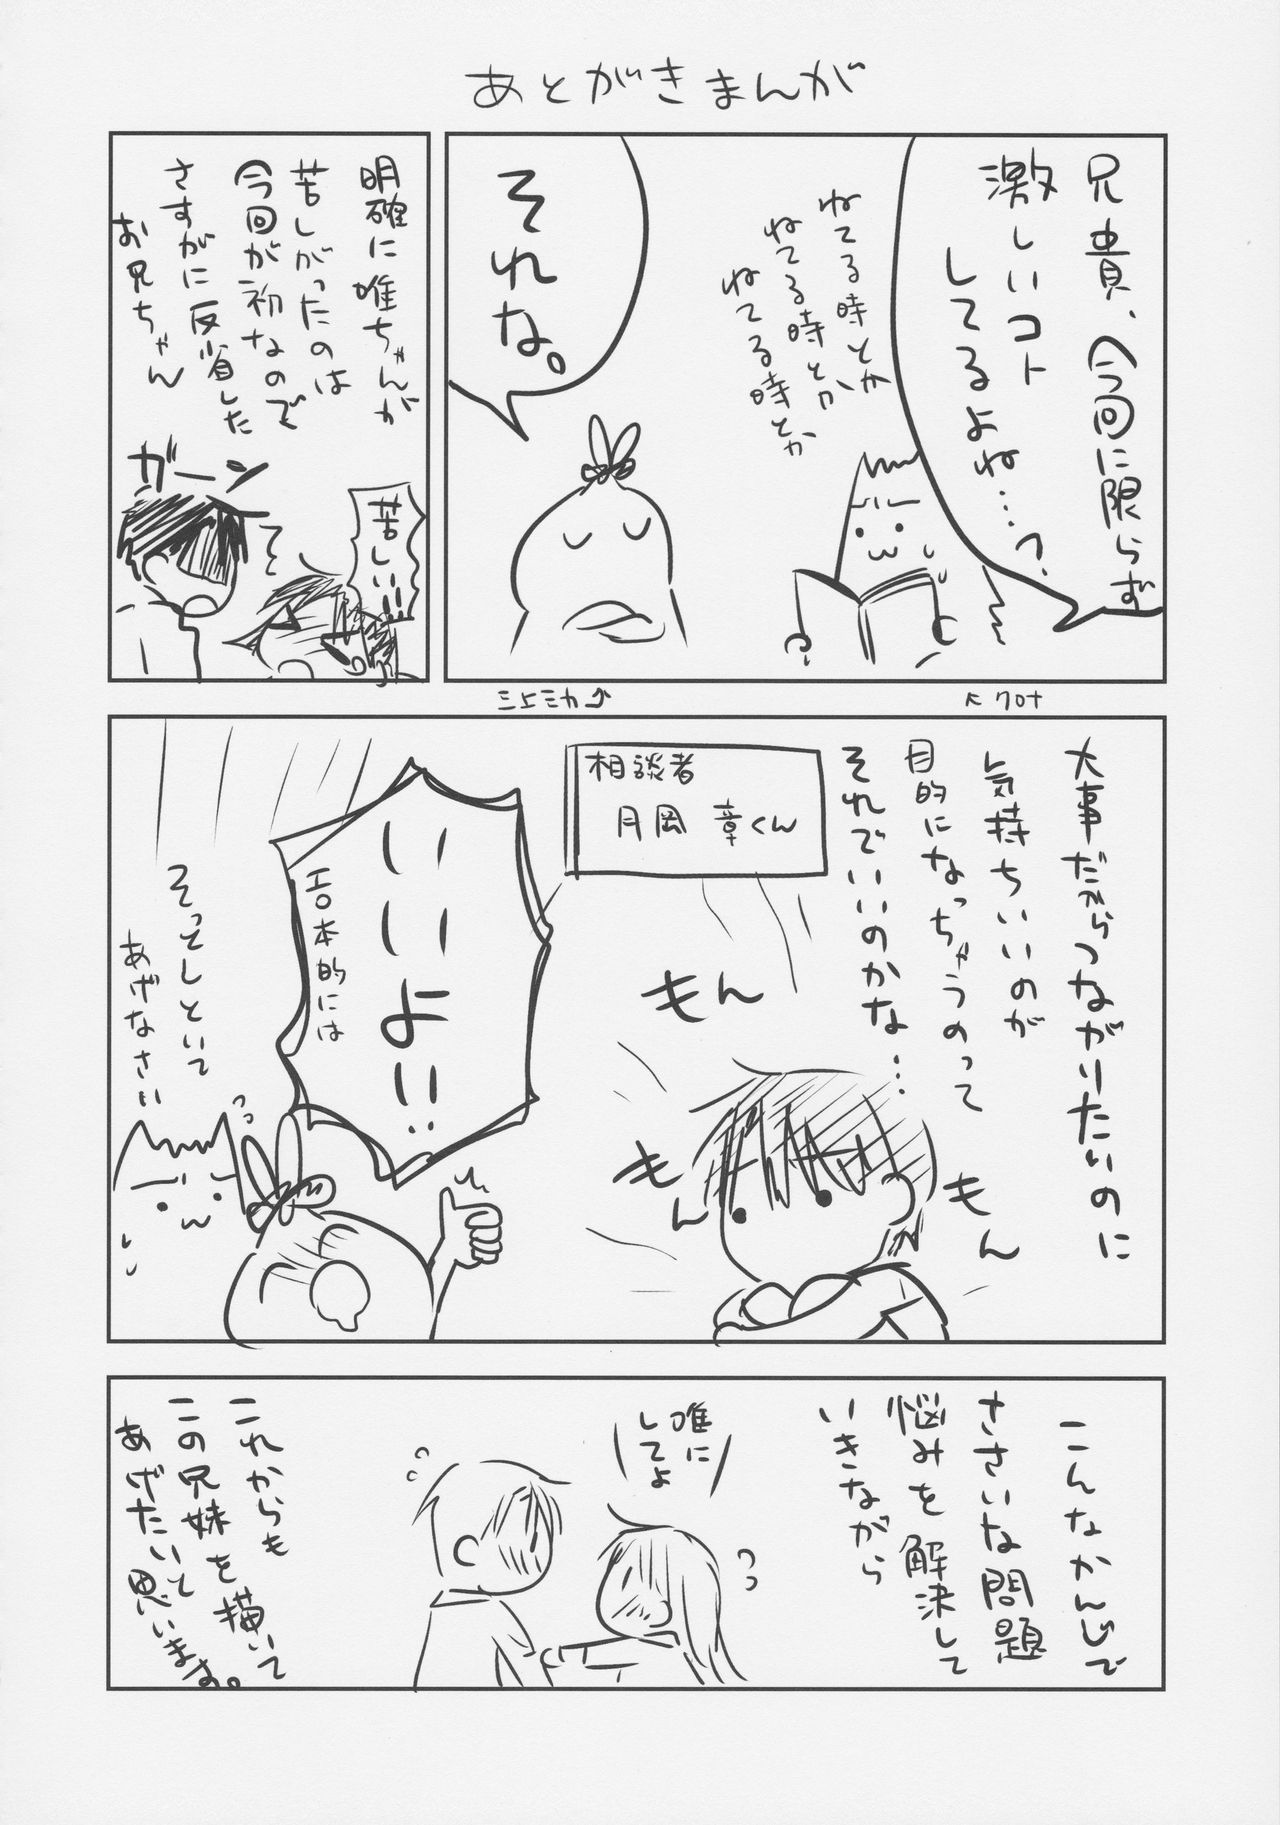 あとがきまんが
兄貴、今回に限らず
激しいコト
してるよね…？
ねてる時とか
ねてる時とか
ねてる時とか
それな。
K クロナ
三上ミカ
明確に唯ちゃんが
苦しがったのは
今回が初なので
さすがに反省した
お兄ちゃん
苦しい!!!
ガーン
大事だからつながりたいのに
気持ちいいのが
目的になっちゃうのって
それでいいのかな…
相談者
月岡 章くん
もん
もん
もん
いいよ!!
エロ本的には
そっとしといて
あげなさい
こんなかんじで
ささいな問題
悩みを解決して
いきながら
唯に
してよ
これからも
この兄妹を描いて
あげたいって
思います。